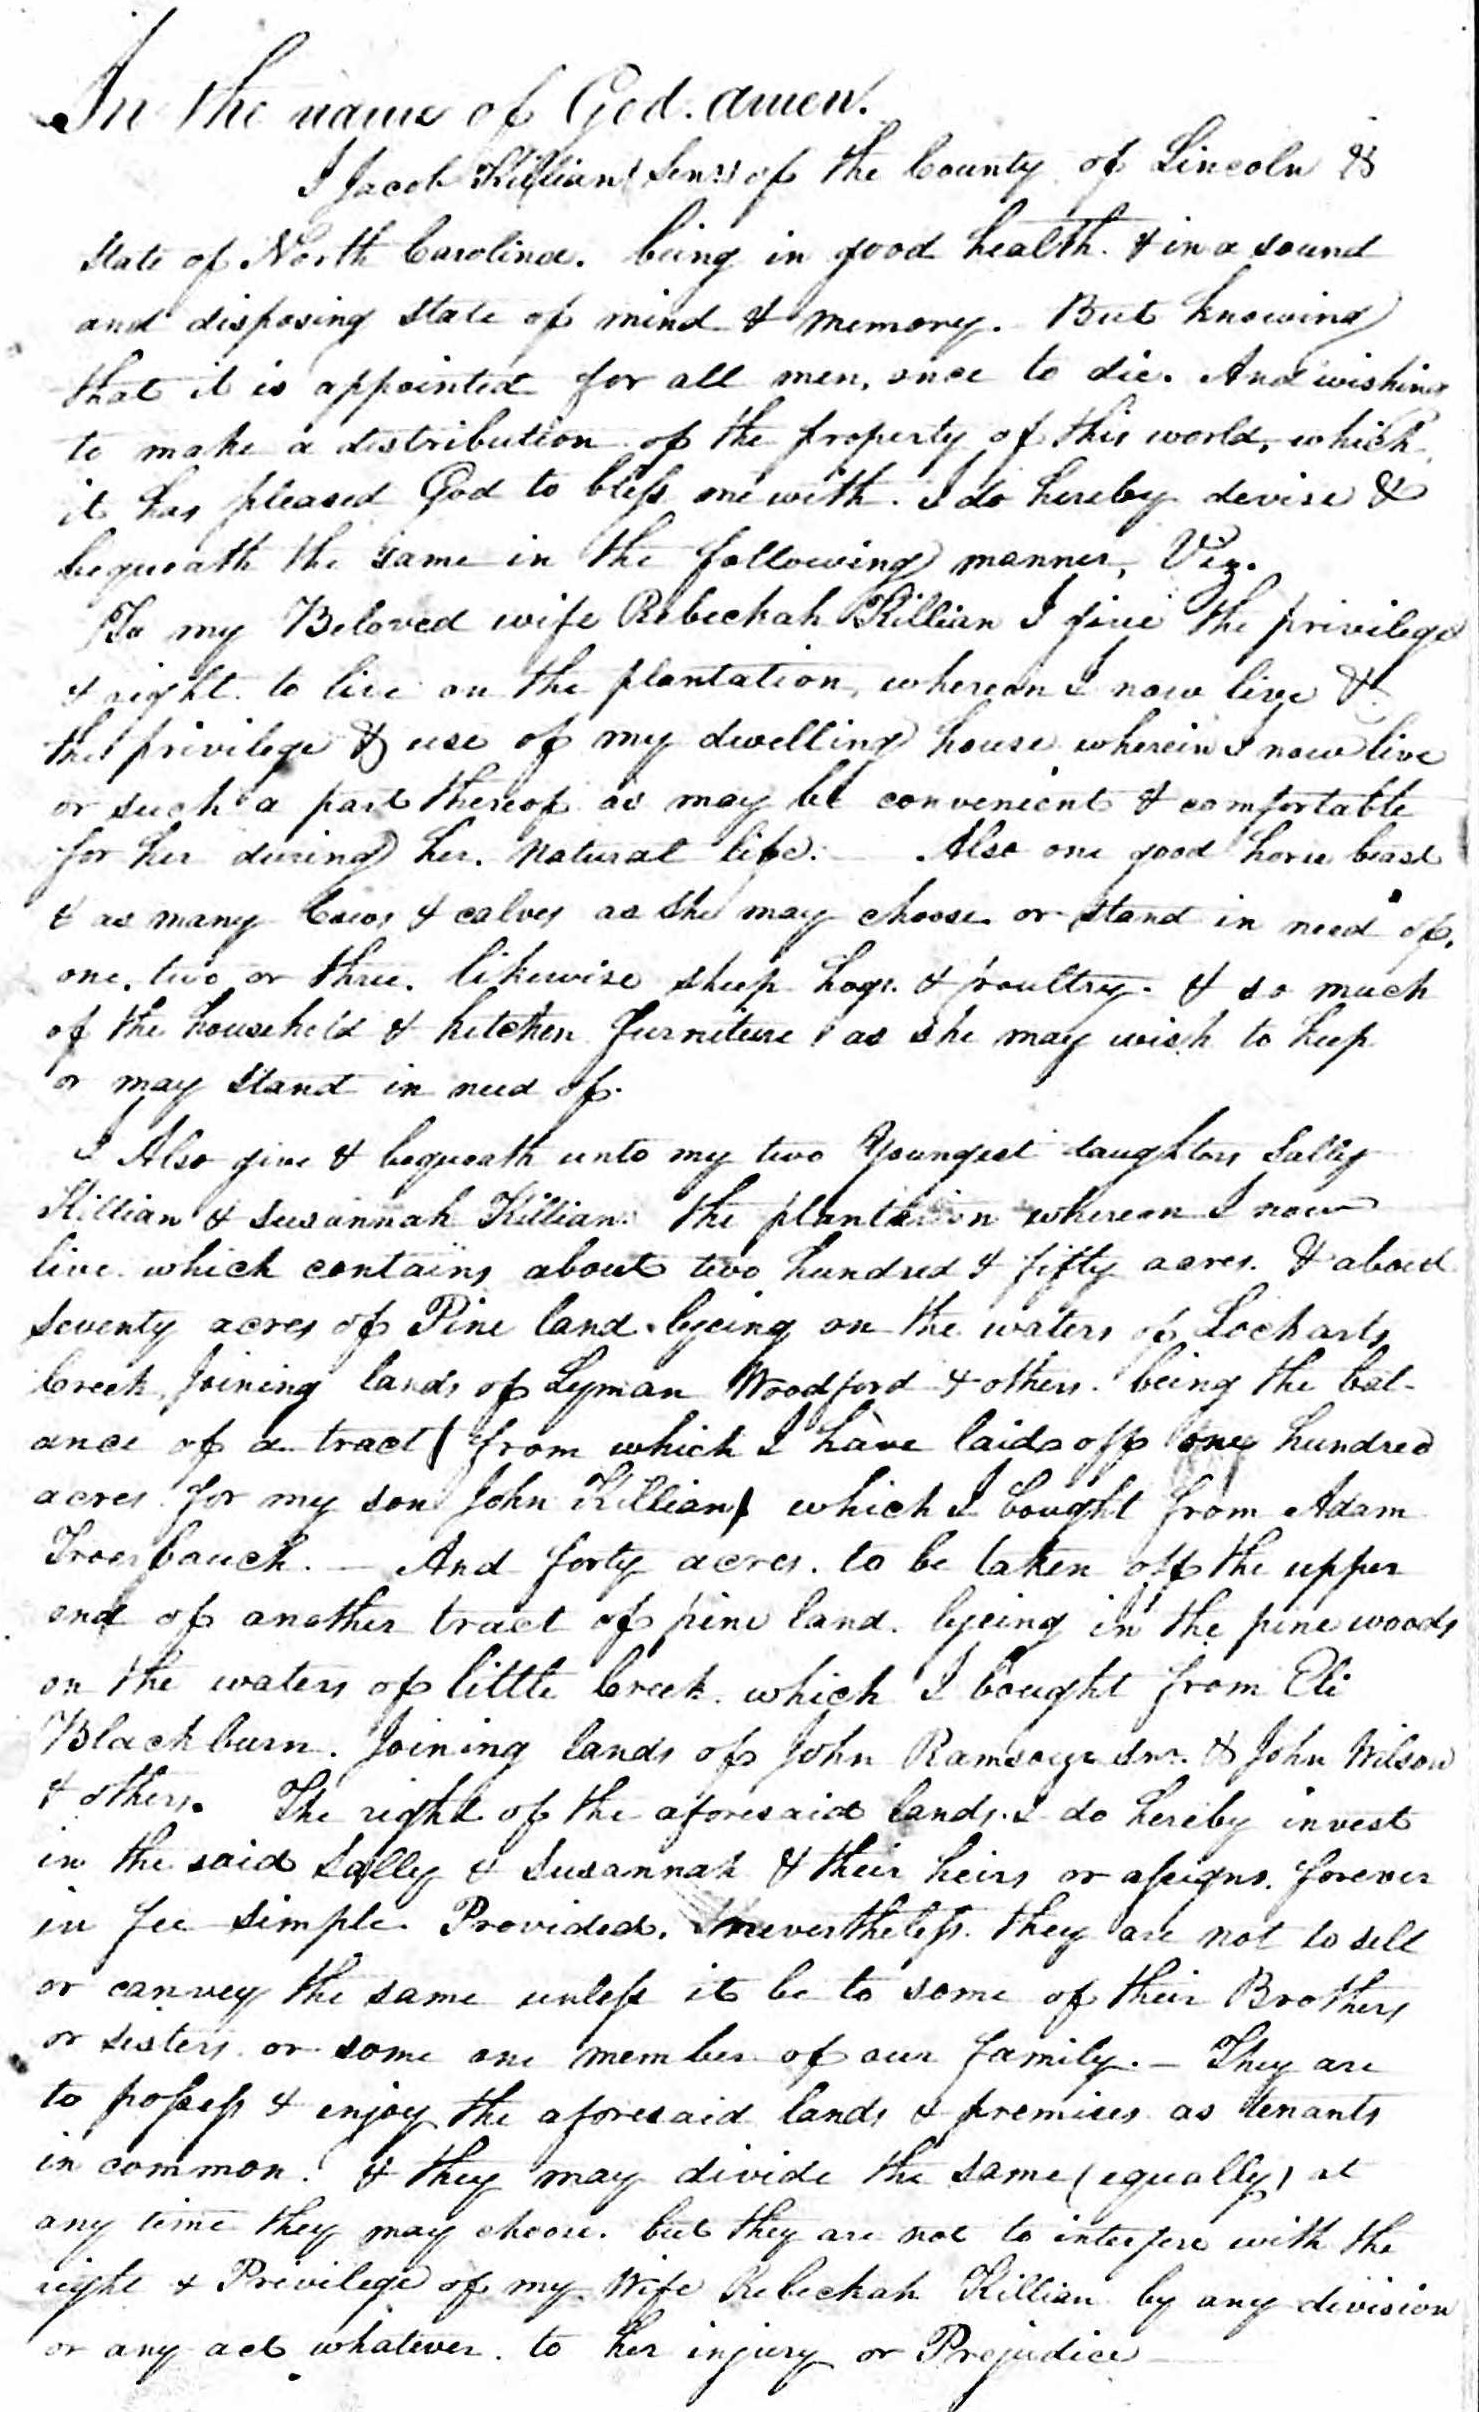 In the name of God. amen.
I Jacob Killian (Senr.) of the County of Lincoln &
State of North Carolina. being in good health. & in a sound
and disposing state of mind & memory. But knowing
that it is appointed for all men, once to die. And wishing
to make a distribution of the property of this world, which
it has pleased God to bless me with. I do hereby devise &
bequeath the same in the following manner, Viz.
To my Beloved wife Rebeckah Killian I give the privilege
& right to live on the plantation, whereon I now live &
the privilege & use of my dwelling house wherein I now live
or such a part thereof as may be convenient & comfortable
for her during her natural life. Also one good horse beast
& as many Cows & calves as she may choose or stand in need of,
one, two or three. likewise sheep hogs & poultry. & so much
of the household & kitchen furniture as she may wish to keep
or may stand in need of.
I Also give & bequeath unto my two Youngest daughters Sally
Killian & Susannah Killian. the plantation whereon I now
live which contains about two hundred & fifty acres. & about
seventy acres of Pine land lyeing on the waters of Lockarts
Creek, Joining lands of Lyman Woodford & others. being the bal-
ance of a tract (from which I have laid off one hundred
acres for my son John Killian) which I bought from Adam
And forty acres. to be taken off the upper
end of another tract of pine land. lyeing in the pine woods
on the waters of little Creek. which I bought from Eli
Blackburn. Joining lands of John Ramsour Snr. & John Wilson
& others. The right of the aforesaid lands. I do hereby invest
in the said Sally & Susannah & their heirs or assigns. forever
in fee simple. Provided, nevertheless. they are not to sell
or canvey the same unless it be to some of their Brothers
or sisters or some one member of our family. — They are
to possess & enjoy the aforesaid lands & premises as tenants
in common. & they may divide the same (equally) at
any time they may choose. but they are not to interfere with the
right & Privilege of my Wife Rebeckah Killian by any division
or any act whatever. to her injury or Prejudice —